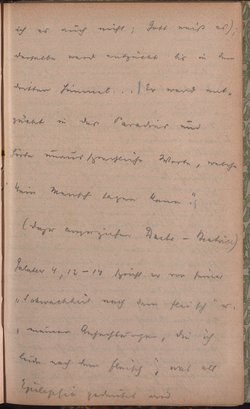 ich es auch nicht; Gott weiß es);
derselbe ward entzückt bis in den
dritten Himmel...) Er ward ent-
zückt in das Paradies und
hörte unaussprechliche Worte, welche
kein Mensch sagen kann."
(
Galater 4, 12-14 spricht er von seiner
"Schwachheit nach dem Fleisch" u.
"meinen Anfechtungen, die ich
leide nach dem Fleisch", was als
Epilepsie gedeutet und